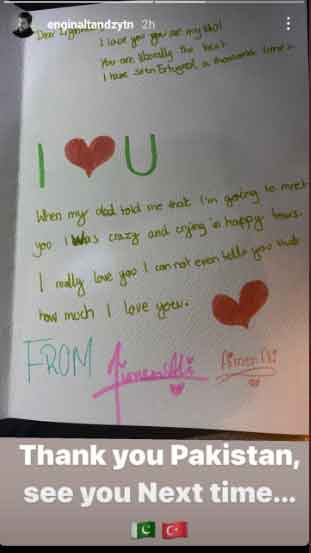 enginaltandzytn 2h
Dear
I love you you are my idol
You are literally the best
I have seen Ertugrul a thousand times
I U
When my dad told me that I'm going to meet
you I was crazy and crying in happy tears.
I really love you I can not even tell you that
how much I love you.
FROM
Thank you Pakistan,
see you Next time...